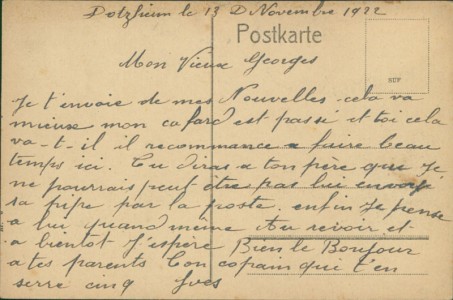 Dotzheim le 13 D Novembre 1922
Postkarte
Mon Vieux Georges
SUF
Je t'envoie de mes Nouvelles. cela va
mieux mon cafard est passé et toi cela
va-t-il il recommance a fuire beau
temps ici. Tu diras a ton père que Je
ne pourrais peut être pas lui envoyé
sa pipe par la poste. enfin Je pense
a lui quand même Au revoir et
a bientot J'espère Bien le Bonjour
a tes parents Ton copain qui t'en
serre cinq Yves